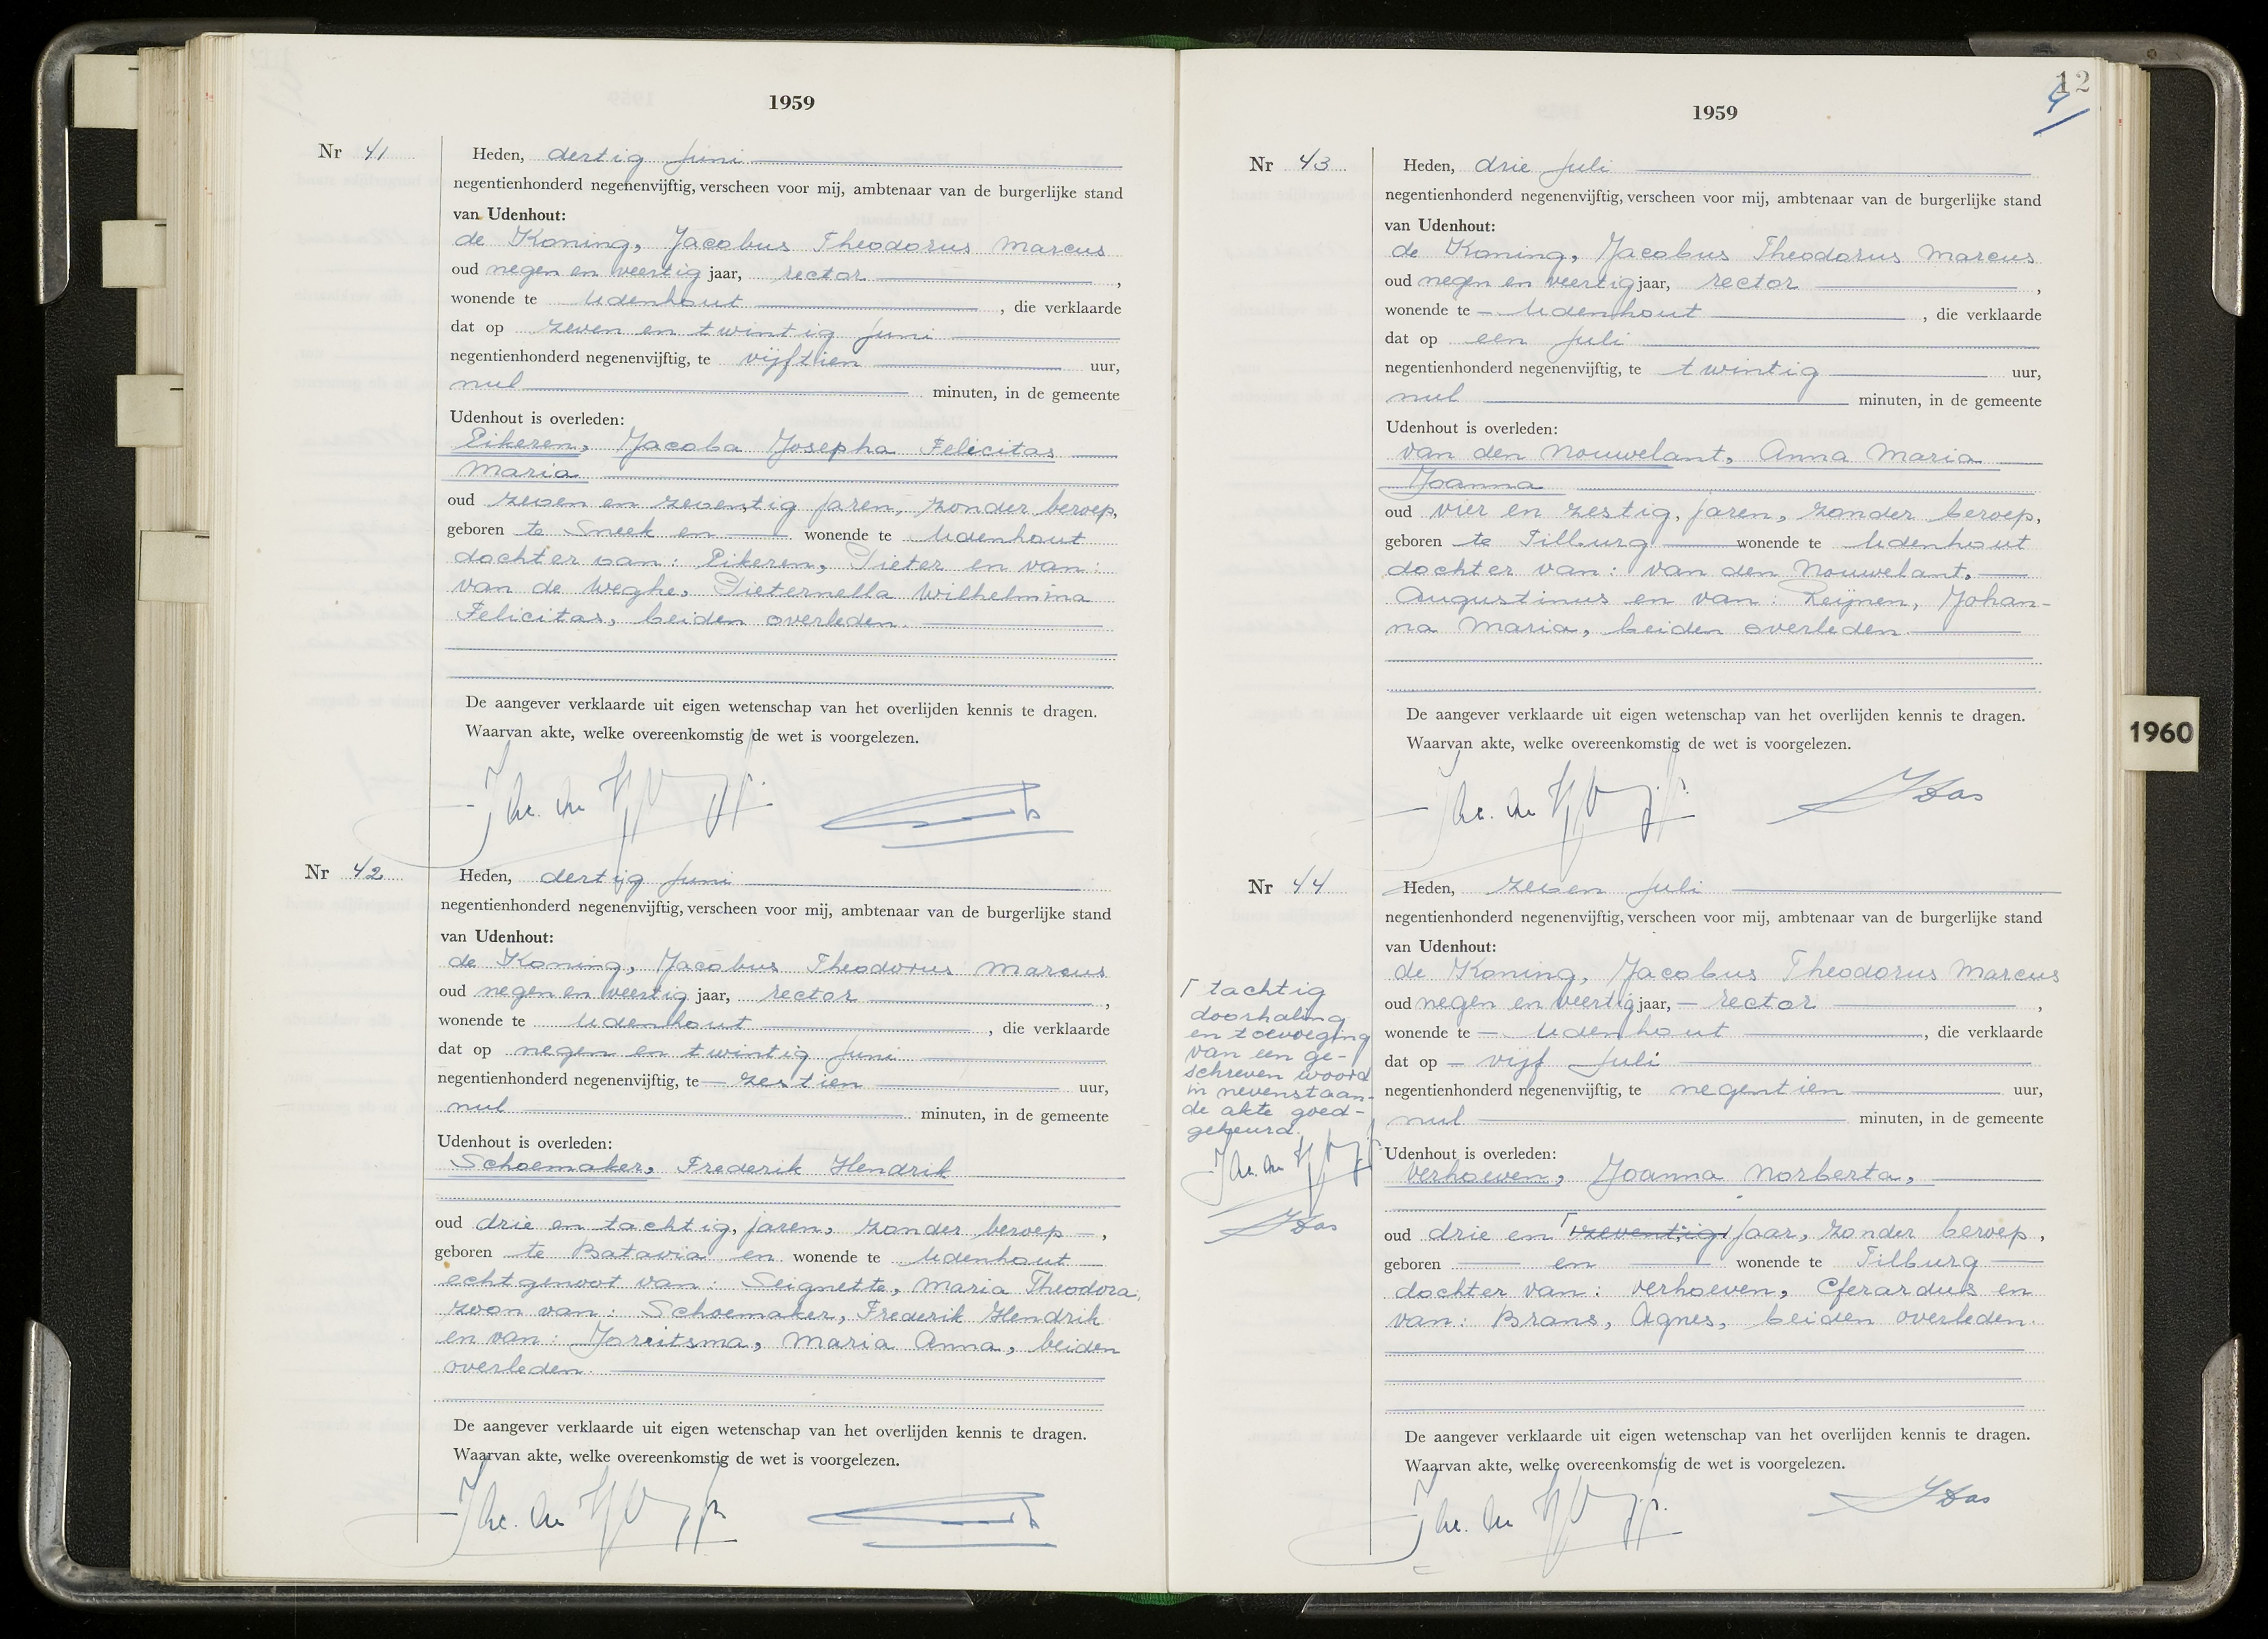 1959
Nr 41
Heden, dertig juni
negentienhonderd negenenvijftig, verscheen voor mij, ambtenaar van de burgerlijke stand
van Udenhout:
de Koning, Jacobus Theodorus Marcus
oud negen en veertig jaar, rector ,
wonende te Udenhout , die verklaarde
dat op zeven en twintig juni
negentienhonderd negenenvijftig, te vijftien uur,
nul minuten, in de gemeente
Udenhout is overleden:
Eikeren, Jacoba Josepha Felicitas
Maria
oud zeven en zeventig jaren, zonder beroep,
geboren te Sneek en wonende te Udenhout
dochter van: Eikeren, Pieter en van:
van de Weghe, Pieternella Wilhelmina
Felicitas, beiden overleden.
De aangever verklaarde uit eigen wetenschap van het overlijden kennis te dragen.
Waarvan akte, welke overeenkomstig de wet is voorgelezen.
Nr 42
Heden, dertig juni
negentienhonderd negenenvijftig, verscheen voor mij, ambtenaar van de burgerlijke stand
van Udenhout:
de Koning, Jacobus Theodorus Marcus
oud negen en veertig jaar, rector ,
wonende te Udenhout , die verklaarde
dat op negen en twintig juni
negentienhonderd negenenvijftig, te zestien uur,
nul minuten, in de gemeente
Udenhout is overleden:
Schoemaker, Frederik Hendrik
oud drie en tachtig, jaren, zonder beroep ,
geboren te Batavia en wonende te Udenhout
echtgenoot van: Seignette, Maria Theodora,
zoon van: Schoemaker, Frederik Hendrik
en van: Jorritsma, Maria Anna, beiden
overleden.
De aangever verklaarde uit eigen wetenschap van het overlijden kennis te dragen.
Waarvan akte, welke overeenkomstig de wet is voorgelezen.
12
1959
Nr 43
Heden, drie juli
negentienhonderd negenenvijftig, verscheen voor mij, ambtenaar van de burgerlijke stand
van Udenhout:
de Koning, Jacobus Theodorus Marcus
oud negen en veertig jaar, rector ,
wonende te Udenhout , die verklaarde
dat op een juli
negentienhonderd negenenvijftig, te twintig uur,
nul minuten, in de gemeente
Udenhout is overleden:
van den Nouwelant, Anna Maria
Joanna
oud vier en zestig, jaren, zonder beroep,
geboren te Tilburg wonende te Udenhout
dochter van: van den Nouwelant,
Augustinus en van: Reijnen, Johan-
na Maria, beiden overleden
De aangever verklaarde uit eigen wetenschap van het overlijden kennis te dragen.
Waarvan akte, welke overeenkomstig de wet is voorgelezen.
JBas
1960
Nr 44
Heden, zeven juli
negentienhonderd negenenvijftig, verscheen voor mij, ambtenaar van de burgerlijke stand
van Udenhout:
de Koning, Jacobus Theodorus Marcus
oud negen en veertig jaar, rector ,
wonende te Udenhout , die verklaarde
dat op vijf juli
negentienhonderd negenenvijftig, te negentien uur,
nul minuten, in de gemeente
Udenhout is overleden:
Verhoeven, Joanna Norberta,
oud drie en zeventig jaar, zonder beroep,
geboren en wonende te Tilburg
dochter van: Verhoeven, Gerardus en
van: Brans, Agnes, beiden overleden.
De aangever verklaarde uit eigen wetenschap van het overlijden kennis te dragen.
Waarvan akte, welke overeenkomstig de wet is voorgelezen.
JBas
tachtig
doorhaling
en toevoeging
van een ge-
schreven woord
in nevenstaan-
de akte goed-
gekeurd.
JBas